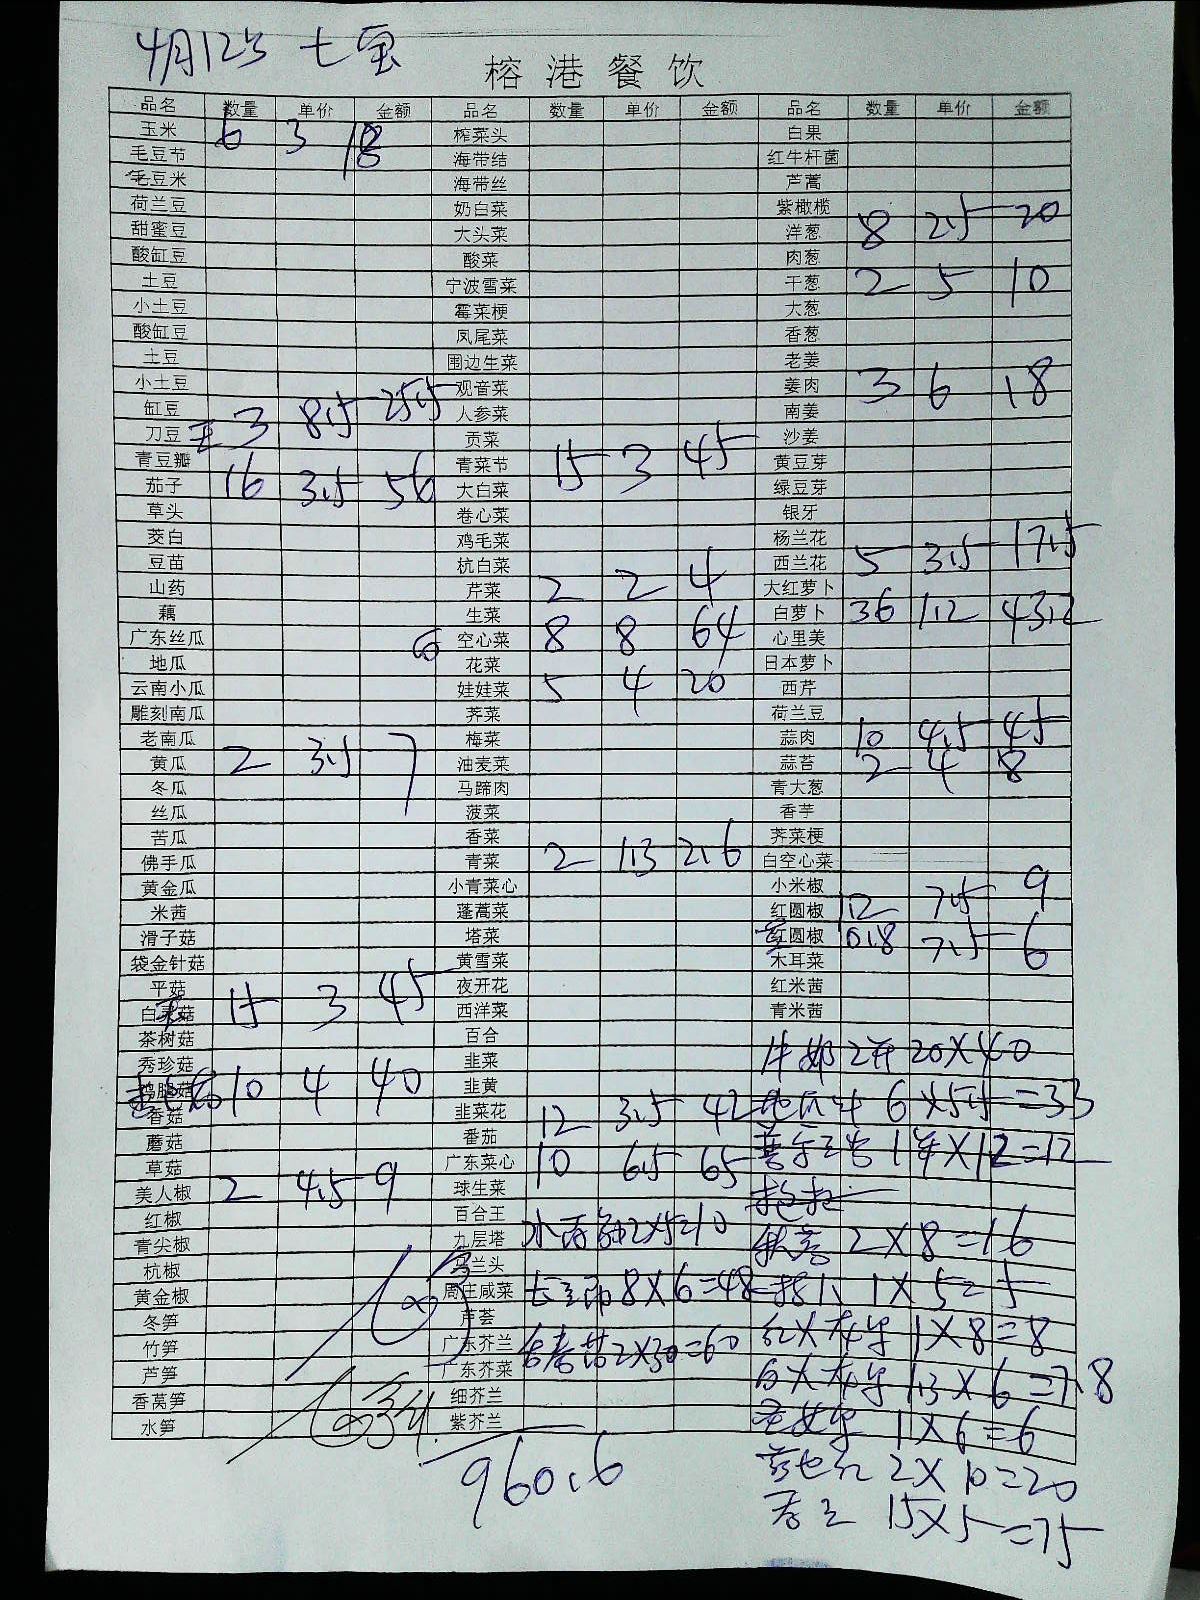 4月12号 七宝
榕港餐饮
品名 数量 单价 金额 品名 数量 单价 金额 品名 数量 单价 金额
玉米 6 3 18 榨菜头 白果
毛豆节 海带结 红牛杆菌
毛豆米 海带丝 芦蒿
荷兰豆 奶白菜 紫橄榄
甜蜜豆 大头菜 洋葱 8 2.5 20
酸缸豆 酸菜 肉葱
土豆 宁波雪菜 干葱 2 5 10
小土豆 霉菜梗 大葱
酸缸豆 凤尾菜 香葱
土豆 围边生菜 老姜
小土豆 观音菜 姜肉 3 6 18
缸豆 3 8.5 25.5 人参菜 南姜
刀豆 贡菜 沙姜
青豆瓣 青菜节 15 3 45 黄豆芽
茄子 16 3.5 56 大白菜 绿豆芽
草头 卷心菜 银牙
茭白 鸡毛菜 杨兰花
豆苗 杭白菜 西兰花 5 3.5 17.5
山药 芹菜 2 2 4 大红萝卜
藕 生菜 白萝卜 36 1.2 43.2
广东丝瓜 空心菜 8 8 64 心里美
地瓜 花菜 日本萝卜
云南小瓜 娃娃菜 5 4 20 西芹
雕刻南瓜 荠菜 荷兰豆
老南瓜 梅菜 蒜肉 10 4.5 45
黄瓜 2 3.5 7 油麦菜 蒜苔 2 4 8
冬瓜 马蹄肉 青大葱
丝瓜 菠菜 香芋
苦瓜 香菜 荠菜梗
佛手瓜 青菜 2 1.3 2.6 白空心菜
黄金瓜 小青菜心 小米椒
米茜 蓬蒿菜 红圆椒 1.2 7.5 9
滑子菇 塔菜 圆椒 0.8 7.5 6
袋金针菇 黄雪菜 木耳菜
平菇 夜开花 红米茜
白灵菇 15 3 45 西洋菜 青米茜
茶树菇 百合
秀珍菇 韭菜 牛奶 2 20 X 40
鸡腿菇 10 4 40 韭黄
香菇 韭菜花 6 X 5.5 = 33
蘑菇 番茄 12 3.5 42
草菇 广东菜心 10 6.5 65 1 X 12 = 12
美人椒 2 4.5 9 球生菜
红椒 百合王
青尖椒 九层塔 2 X 5 = 10 2 X 8 = 16
杭椒 马兰头
黄金椒 周庄咸菜 8 X 6 = 48 1 X 5 = 5
冬笋 芦荟
竹笋 广东芥兰 2 X 30 = 60 红火龙果 1 X 8 = 8
芦笋 广东芥菜 白火龙果 1.3 X 6 = 7.8
香莴笋 细芥兰
水笋 紫芥兰 圣女果 1 X 6 = 6
960.6
2 X 10 = 20
15 X 5 = 75